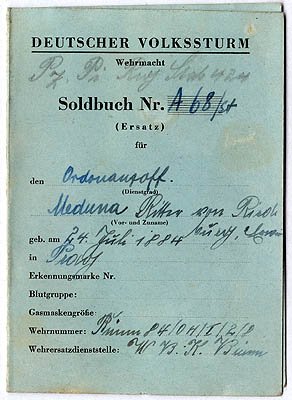 DEUTSCHER VOLKSSTURM
Wehrmacht
Soldbuch Nr. A 68/st
(Ersatz)
für
den Ordonanzoff.
(Dienstgrad)
Meduna Ritter von
(Vor- und Zuname)
geb. am 24. Juli 1884
in
Erkennungsmarke Nr.
Blutgruppe:
Gasmaskengröße:
Wehrnummer: Brünn 84/
Wehrersatzdienststelle: W. B. K. Brünn